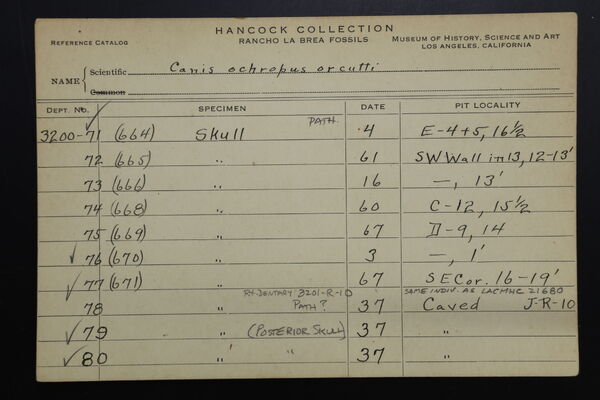 HANCOCK COLLECTION
REFERENCE CATALOG RANCHO LA BREA FOSSILS MUSEUM OF HISTORY, SCIENCE AND ART
LOS ANGELES, CALIFORNIA
NAME { Scientific Canis ochropus orcutti
Common
DEPT. NO. SPECIMEN DATE PIT LOCALITY
3200-71 (664) Skull PATH. 4 E-4+5, 16½
72 (665) " 61 SW Wall in 13, 12-13'
73 (666) " 16 —, 13'
74 (668) " 60 C-12, 15½
75 (669) " 67 D-9, 14
✓ 76 (670) " 3 —, 1'
✓ 77 (671) " 67 SE Cor. 16-19'
RT. DENTARY 3201-R-10 SAME INDIV. AS LACMHC 21680
78 " PATH? 37 Caved J-R-10
✓ 79 " (POSTERIOR SKULL) 37 "
✓ 80 " " 37